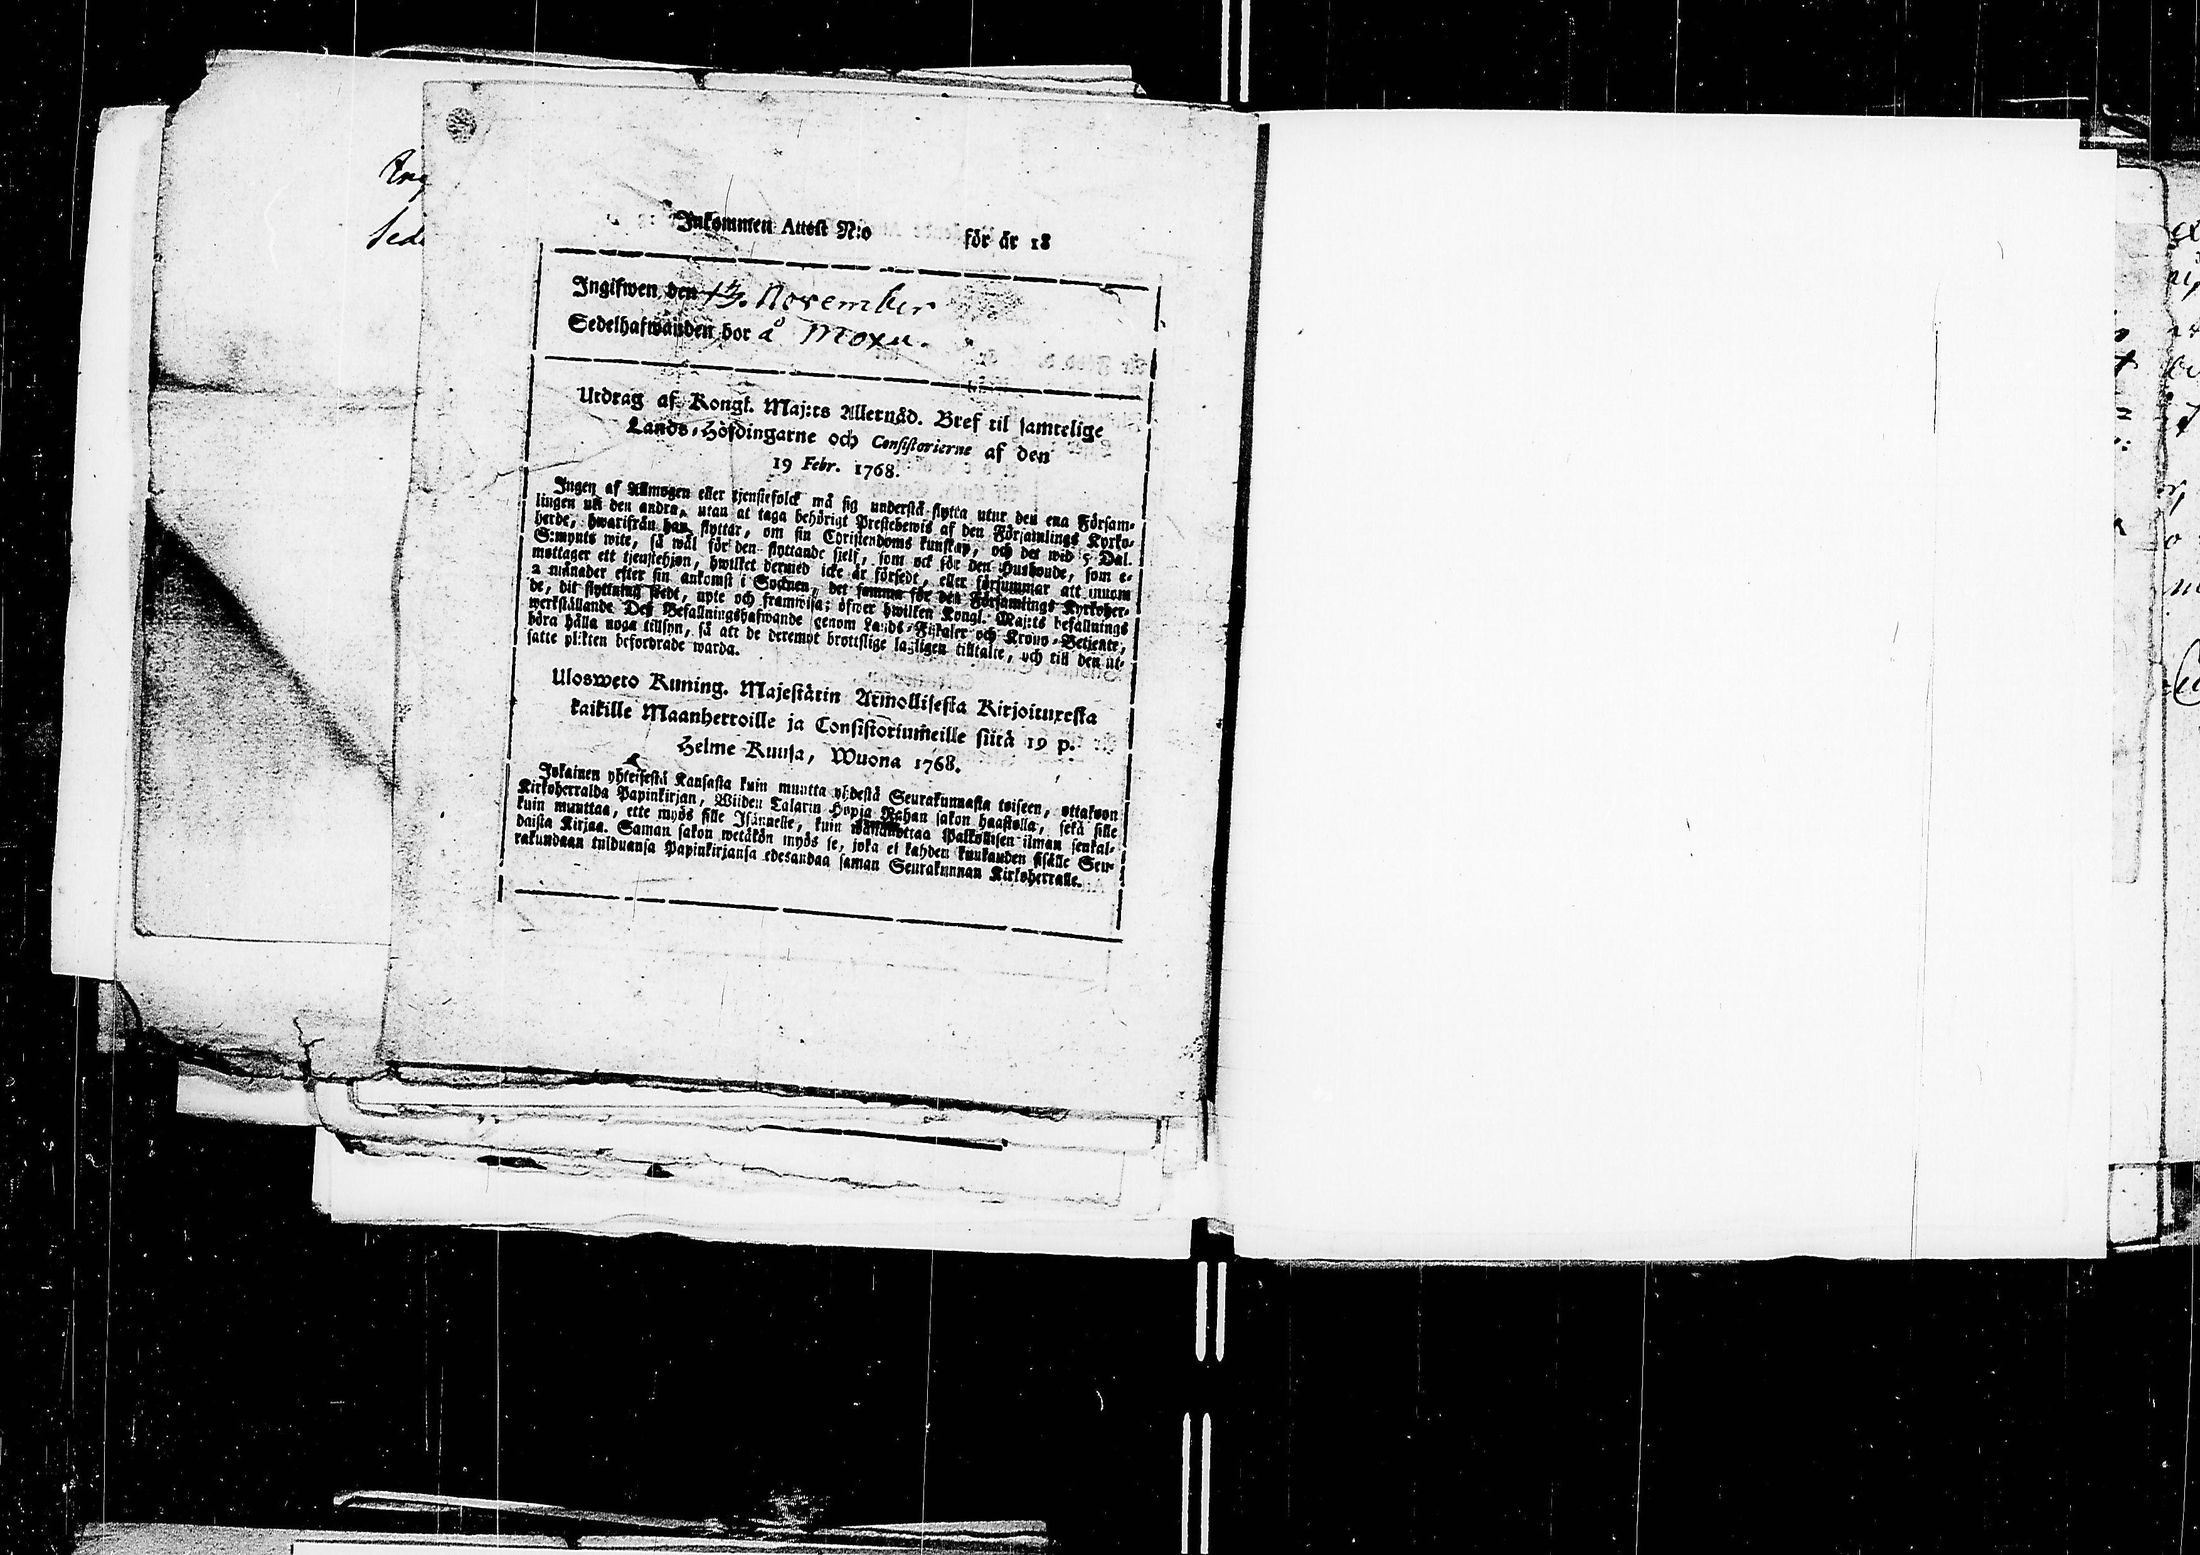 Inkommen Attest N:o för år 18
Ingifwen den 13. November
Sedelhafwanden bor å Moxu.
Utdrag af Kongl. Maj:ts Allernåd. Bref til samtelige
Lands-Höfdingarne och Consistorierne af den
19 Febr. 1768.
Ingen af Allmogen eller tjenstefolck må sig understå flytta utur den ena Försam-
lingen uti den andra, utan at taga behörigt Prestebewis af den Församlings Kyrko-
herde, hwarifrån han flyttar, om sin Christendoms kunskap, och det wid 5 Dal.
S:mynts wite, så wäl för den flyttande sielf, som ock för den Husbonde, som e-
mottager ett tjenstehjon, hwilket dermed icke är försedt, eller försummar att innom
2 månader efter sin ankomst i Socknen, det samma för den Församlings Kyrkoher-
de, dit flyttning skedt, upte och framwisa; öfwer hwilken Kongl. Maj:ts befallnings
werkställande Dess Befallningshafwande genom Lands-Fiskaler och Krono-Betjente,
böra hålla noga tillsyn, så att de deremot brottslige lagligen tilltalte, och till den ut-
satte plikten befordrade warda.
Ulosweto Kuning. Majestätin Armollisesta Kirjoituxesta
kaikille Maanherroille ja Consistoriumeille siitä 19 p.
Helme-Kuusa, Wuona 1768.
Jokainen yhteisestä Kansasta kuin muutta yhdestä Seurakunnasta toiseen, ottakoon
Kirkoherralda Papinkirjan, Wiiden Talarin Hopia Rahan sakon haastolla, sekä sille
kuin muuttaa, ette myös sille Isännelle, kuin wastanottaa Palkollisen ilman senkal-
daista Kirjaa. Saman sakon wetäkön myös se, joka ei kahden kuukauden sisälle Seu-
rakundaan tulduansa Papinkirjansa edesandaa saman Seurakunnan Kirkoherralle.